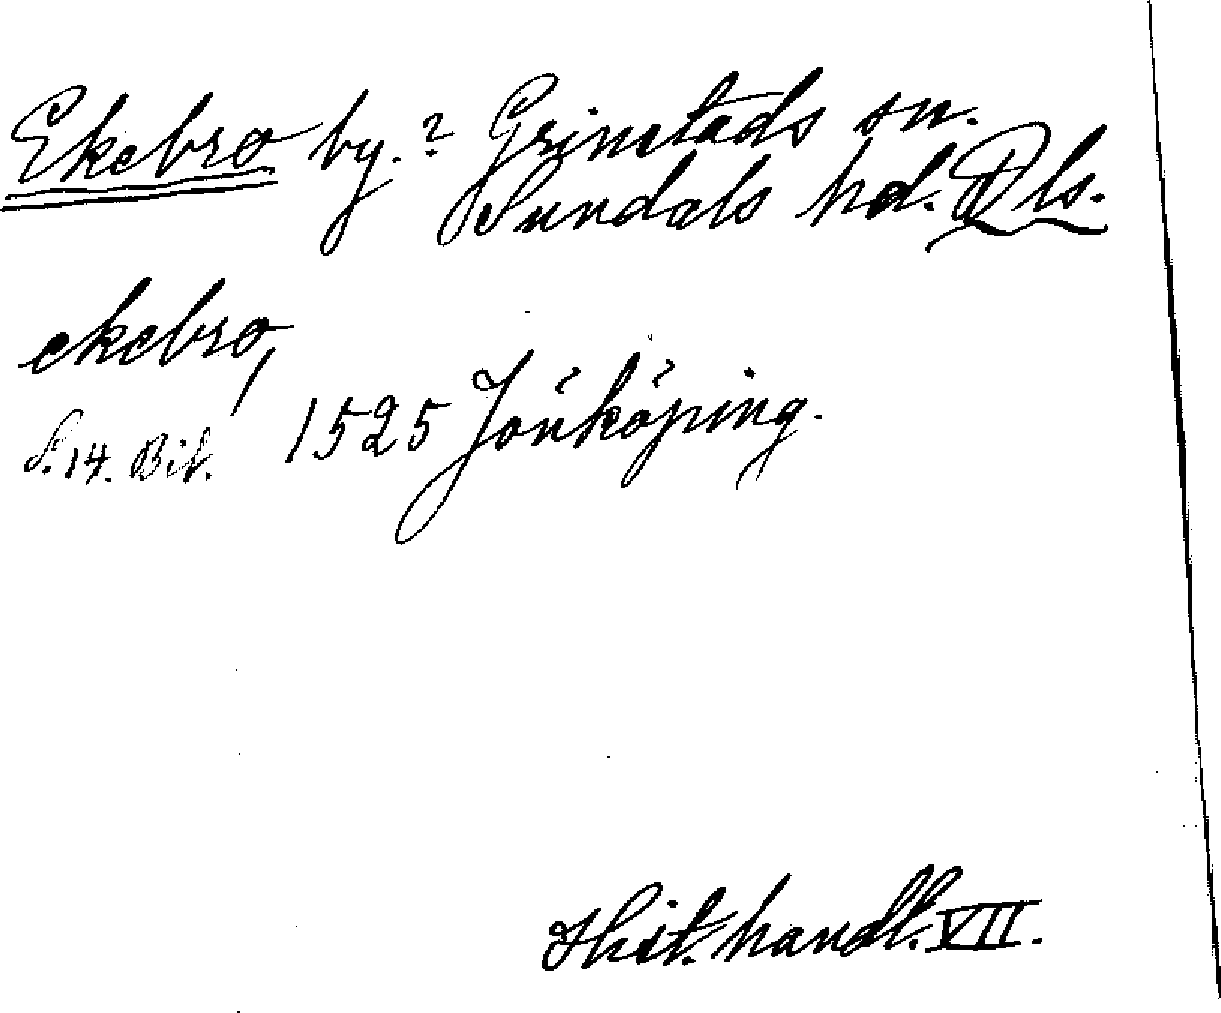 Ekebro by.? Grinstads sn.
Sundals hd. Dls.
ekebro,
S. 14. Bit. 1525 Jönköping.
Hist. handl. VII.